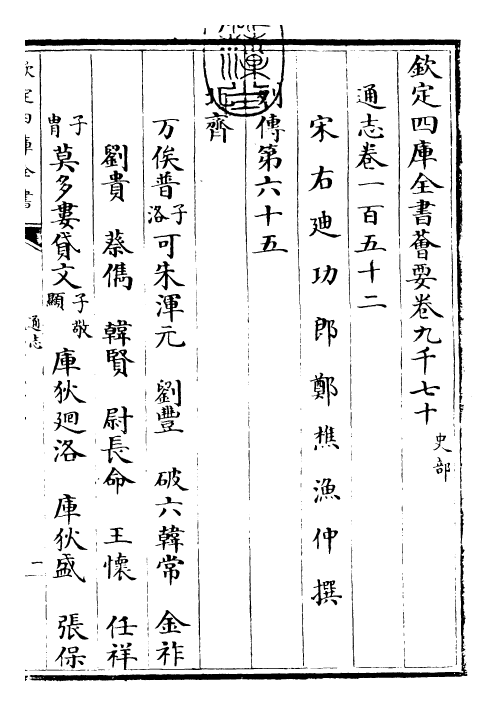 欽定四庫全書薈要卷九千七十 史部
通志卷一百五十二
宋右迪功郎鄭樵漁仲撰
列傳第六十五
北齊
万俟普子洛 可朱渾元 劉豐 破六韓常 金祚
劉貴 蔡儁 韓賢 尉長命 王懷 任祥
子胄 莫多婁貸文子敬顯 庫狄廻洛 庫狄盛 張保
欽定四庫全書
通志
二